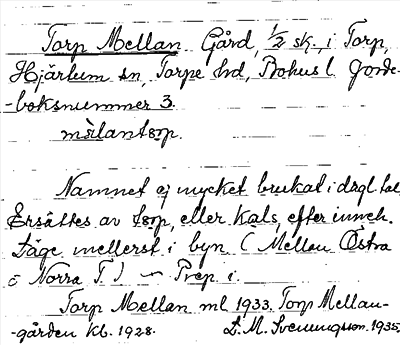 Torp Mellan. Gård, 1/2 sk., i Torp,
Hjärtum sn, Torpe hd, Bohus l. Jorde-
-boksnummer 3.
mälantårp.
Namnet ej mycket brukat i dagl. tal.
Ersättes av tårp, eller Kals, efter inneh.
Läge mellerst i byn (Mellan Östra
o Norra T.) — Prep i.
Torp Mellan ml 1933. Torp Mellan-
-gården kb. 1928. L. M. Svenungsson. 1935.